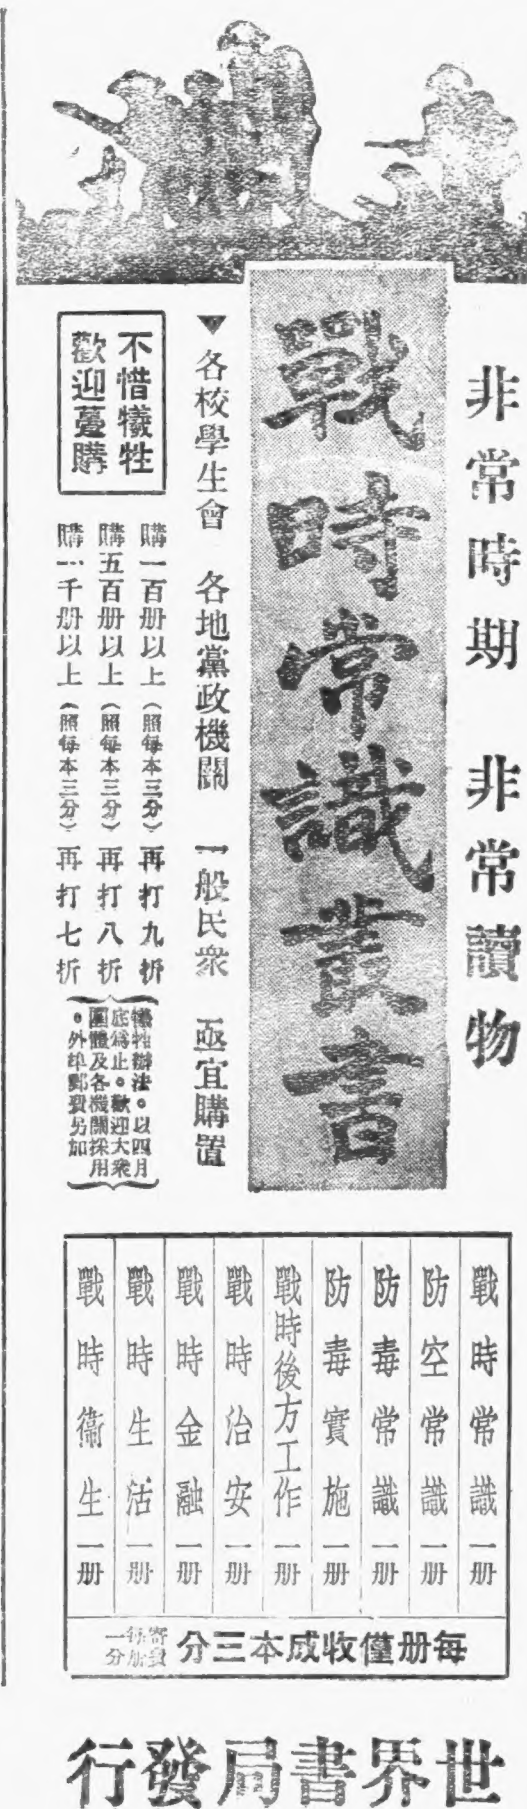 非常時期　非常讀物
戰時常識叢書
▼各校學生會　各地黨政機關　一般民衆　亟宜購置
不惜犧牲
歡迎躉購
購一百册以上（照每本三分）再打九折
購五百册以上（照每本三分）再打八折
購一千册以上（照每本三分）再打七折
犧牲辦法。以四月
底爲止。歡迎大衆
團體及各機關採用
。外埠郵費另加
戰時常識一册
防空常識一册
防毒常識一册
防毒實施一册
戰時後方工作一册
戰時治安一册
戰時金融一册
戰時生活一册
戰時衞生一册
每册僅收成本三分
寄費
每册
一分
世界書局發行